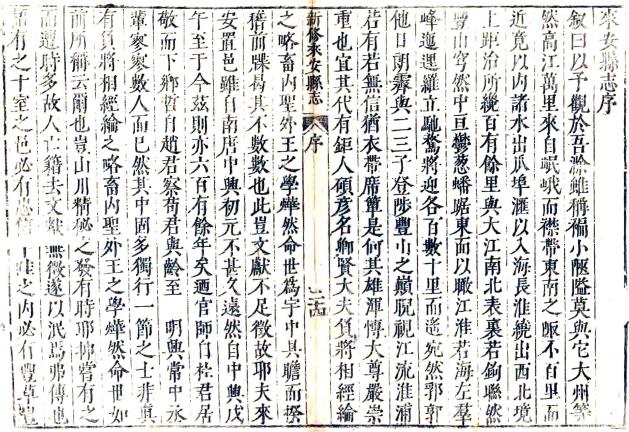 來安縣志序
叙曰以予觀於吾滁雖稱褊小陋隘莫與它大州等
然高江萬里來自岷峨而襟帶東南之陬不百里而
近竟以内諸水出瓜埠滙以入海長淮繞出西北境
上距治所纔百有餘里與大江南北表裏若鉤聮然
豐山穹然中亘欝葱蟠踞東面以瞰江淮若海左羣
峰迤邐羅立馳騖將迎各百數十里而遥宛然郛郭
他日朗霽與二三子登陟豐山之巔睨視江流淮浦
若有若無信猶衣帶席簟是何其雄渾博大尊嚴崇
重也宜其代有鉅人碩彦名卿賢大夫負將相經綸
新修來安縣志 序
之略畜内聖外王之學燁然命世爲宇中具瞻而揆
稽而牒曷其不數數也此豈文獻不足徵故耶夫來
安置邑雖自南唐中興初元不甚久遠然自中興戊
午至于今兹則亦六百有餘年矣廼官師自杜君居
敬而下鄉哲自趙君察荀君與齡至 明興常中丞
輩寥寥數人而已然其中固多獨行一節之士非眞
有負將相經綸之略畜内聖外王之學燁然命世如
前所稱云爾也豈山川精秘之發有時耶抑嘗有之
而遭時多故人亡籍去文獻無徵遂以泯焉弗傳也
語有之十室之邑必有忠信十畦之内必有豐草